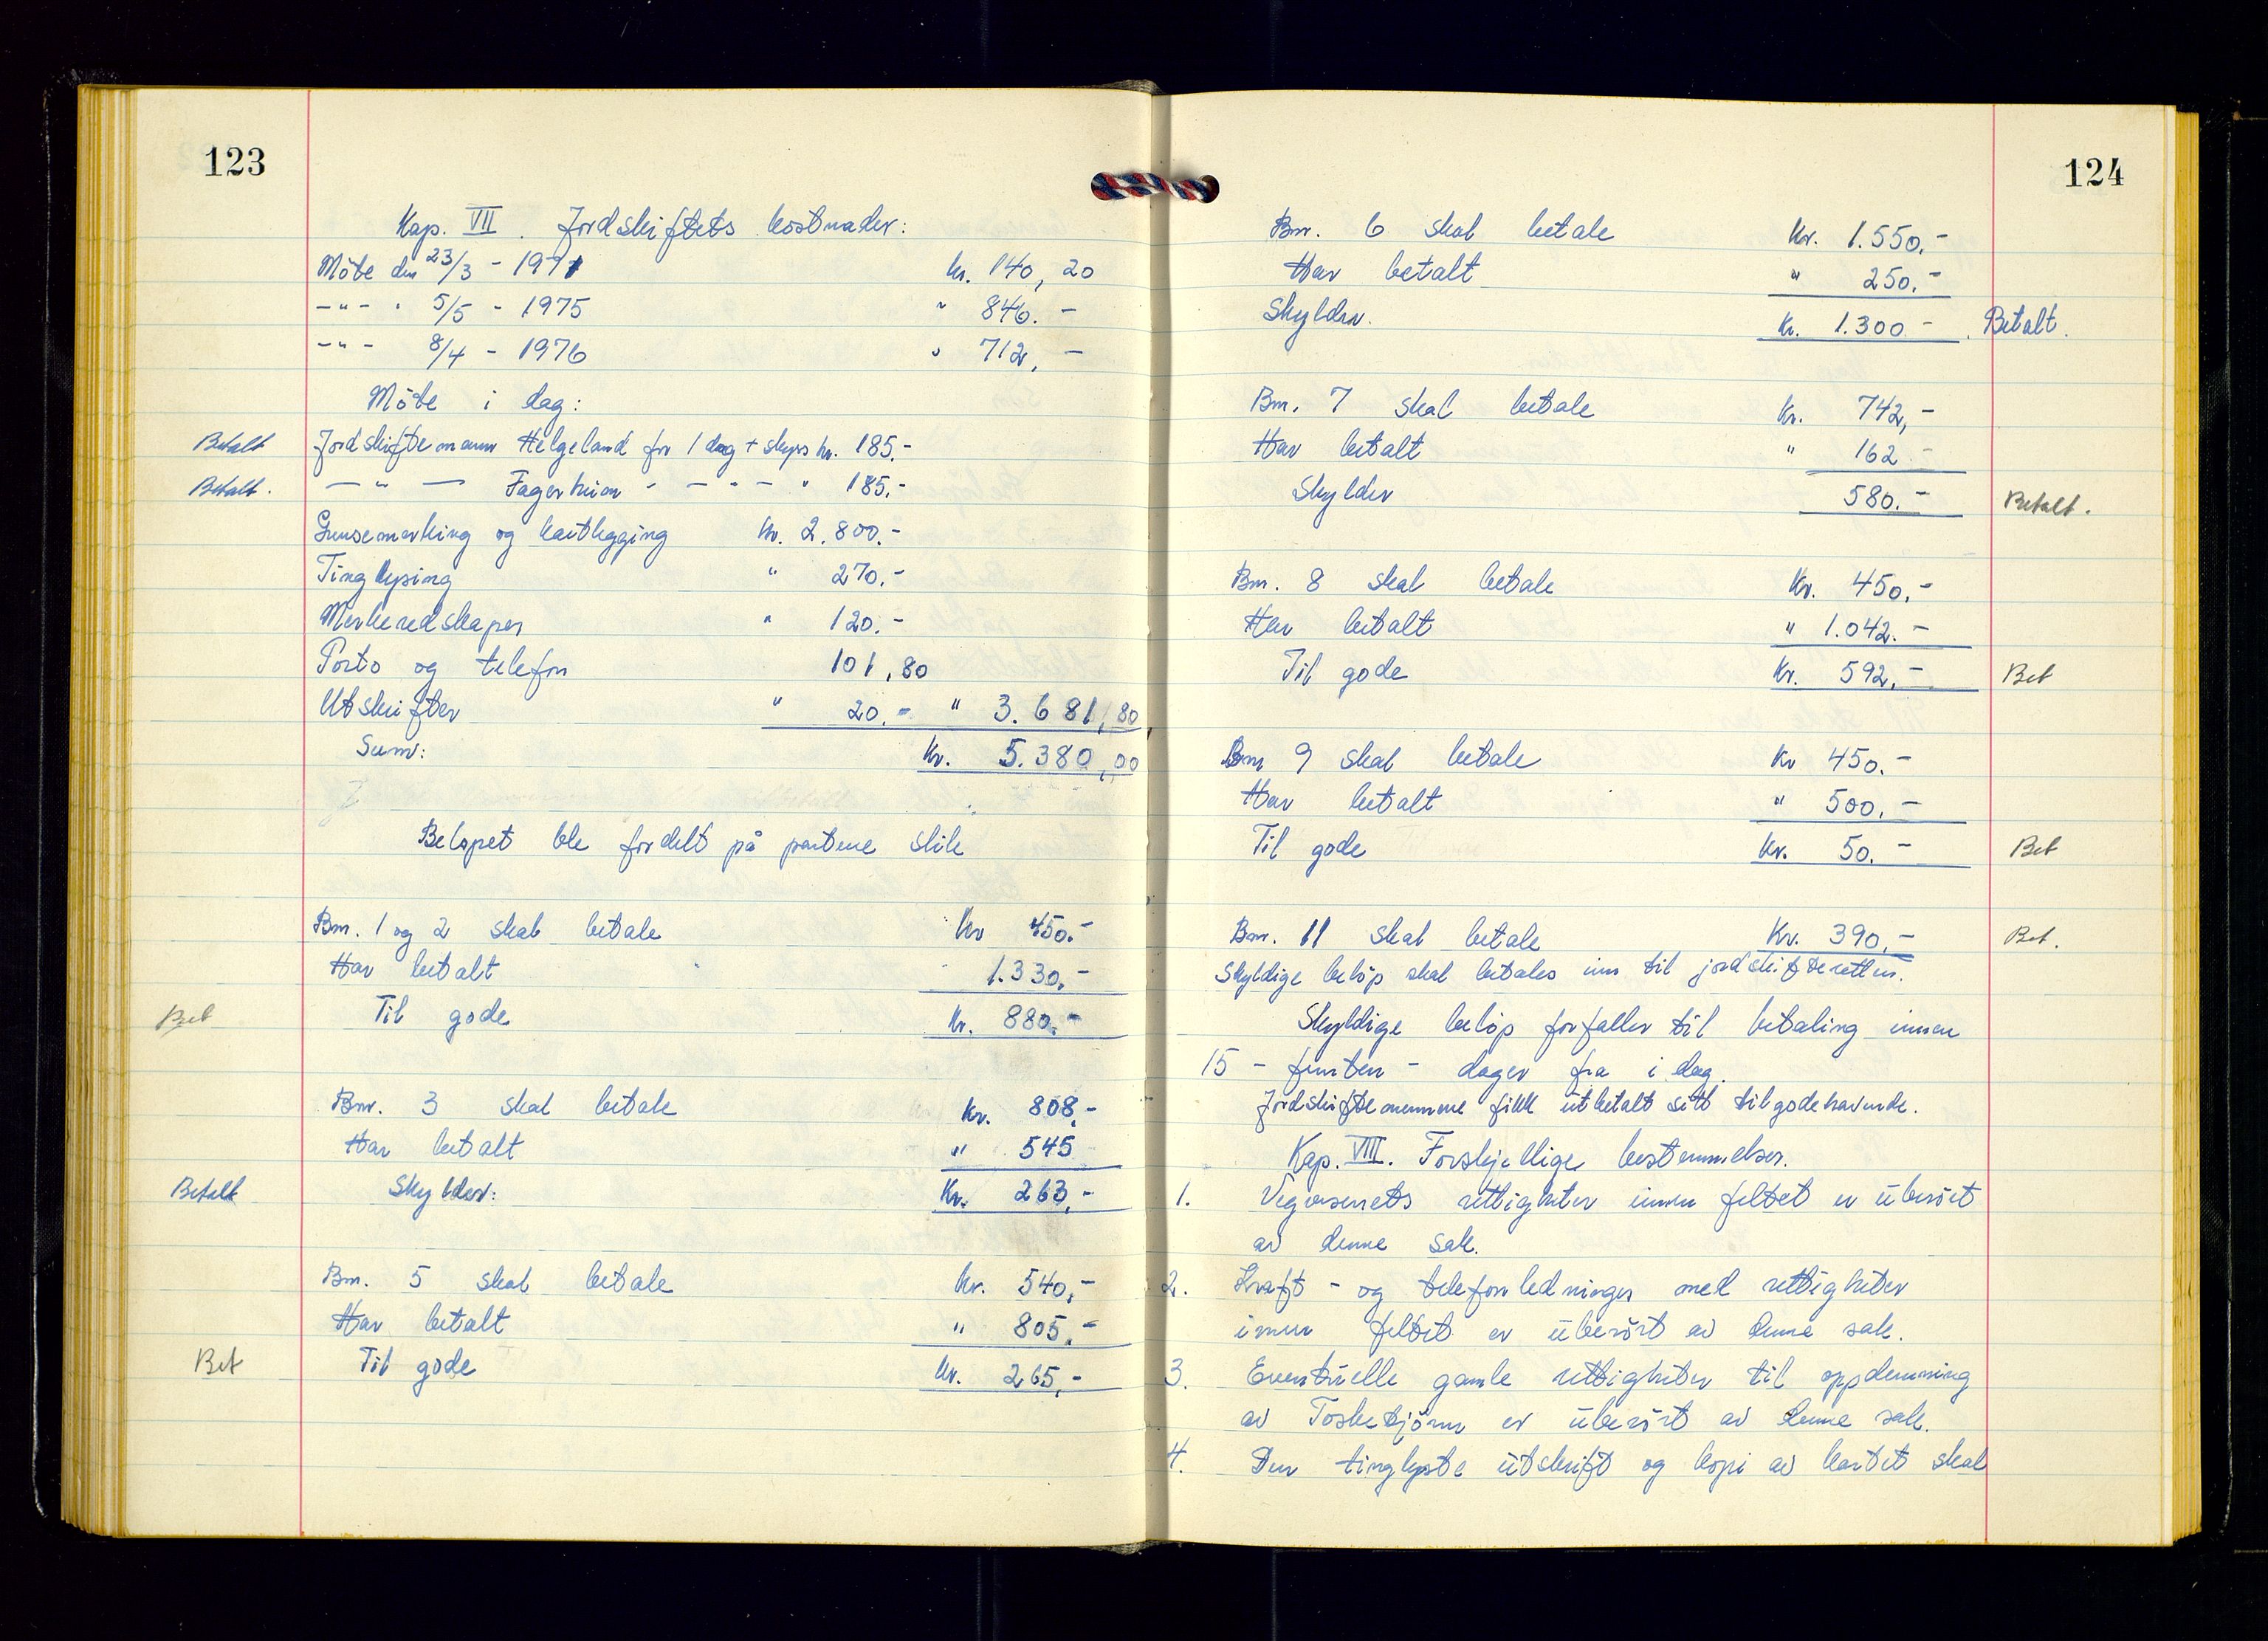 123
Kap. VII. Jordskiftets kostnader:
Möte den 23/3 - 1971 kr. 140,20
-"- " 5/5 - 1975 " 846.-
-"- 8/4 - 1976 " 712,-
Möte i dag:
Betalt Jordskiftemann Helgeland for 1 dag + skyss kr. 185.-
Betalt. - " - Fagerheim - - " - " 185.-
Grensemerking og kartlegging kr. 2.800.-
Tinglysing " 270.-
Merkeredskaper " 120.-
Porto og telefon 101,80
Utskrifter " 20.- " 3.681,80
Sum: Kr. 5.380,00
Beløpet ble fordelt på partene slik
Bnr. 1 og 2 skal betale Kr 450.-
Har betalt 1.330.-
Bet Til gode Kr. 880.-
Bnr. 3 skal betale Kr. 808,-
Har betalt " 545
Betalt Skylder: Kr. 263,-
Bnr. 5 skal betale Kr. 540,-
Har betalt " 805,-
Bet Til gode Kr. 265,-
124
Bnr. 6 skal betale Kr. 1.550,-
Har betalt " 250.-
Skylder. Kr. 1.300.- Betalt.
Bnr. 7 skal betale Kr. 742,-
Har betalt " 162.-
Skylder 580.- Betalt.
Bnr. 8 skal betale Kr. 450,-
Har betalt " 1.042.-
Til gode Kr. 592,- Bet
Bnr 9 skal betale Kr 450.-
Har betalt " 500,-
Til gode Kr. 50.- Bet
Bnr. 11 skal betale Kr. 390,- Bet.
Skyldige beløp skal betales inn til jordskifteretten.
Skyldige beløp forfaller til betaling innen
15 - femten - dager fra i dag.
Jordskiftemennene fikk utbetalt sitt tilgodehavende.
Kap. VIII. Forskjellige bestemmelser.
1. Vegvesenets rettigheter innen feltet er uberört
av denne sak.
2. Kraft- og telefonledninger med rettigheter
innen feltet er uberört av denne sak.
3. Eventuelle gamle rettigheter til oppdemning
av Tosketjörn er uberört av denne sak.
4. Den tinglyste utskrift og kopi av kartet skal